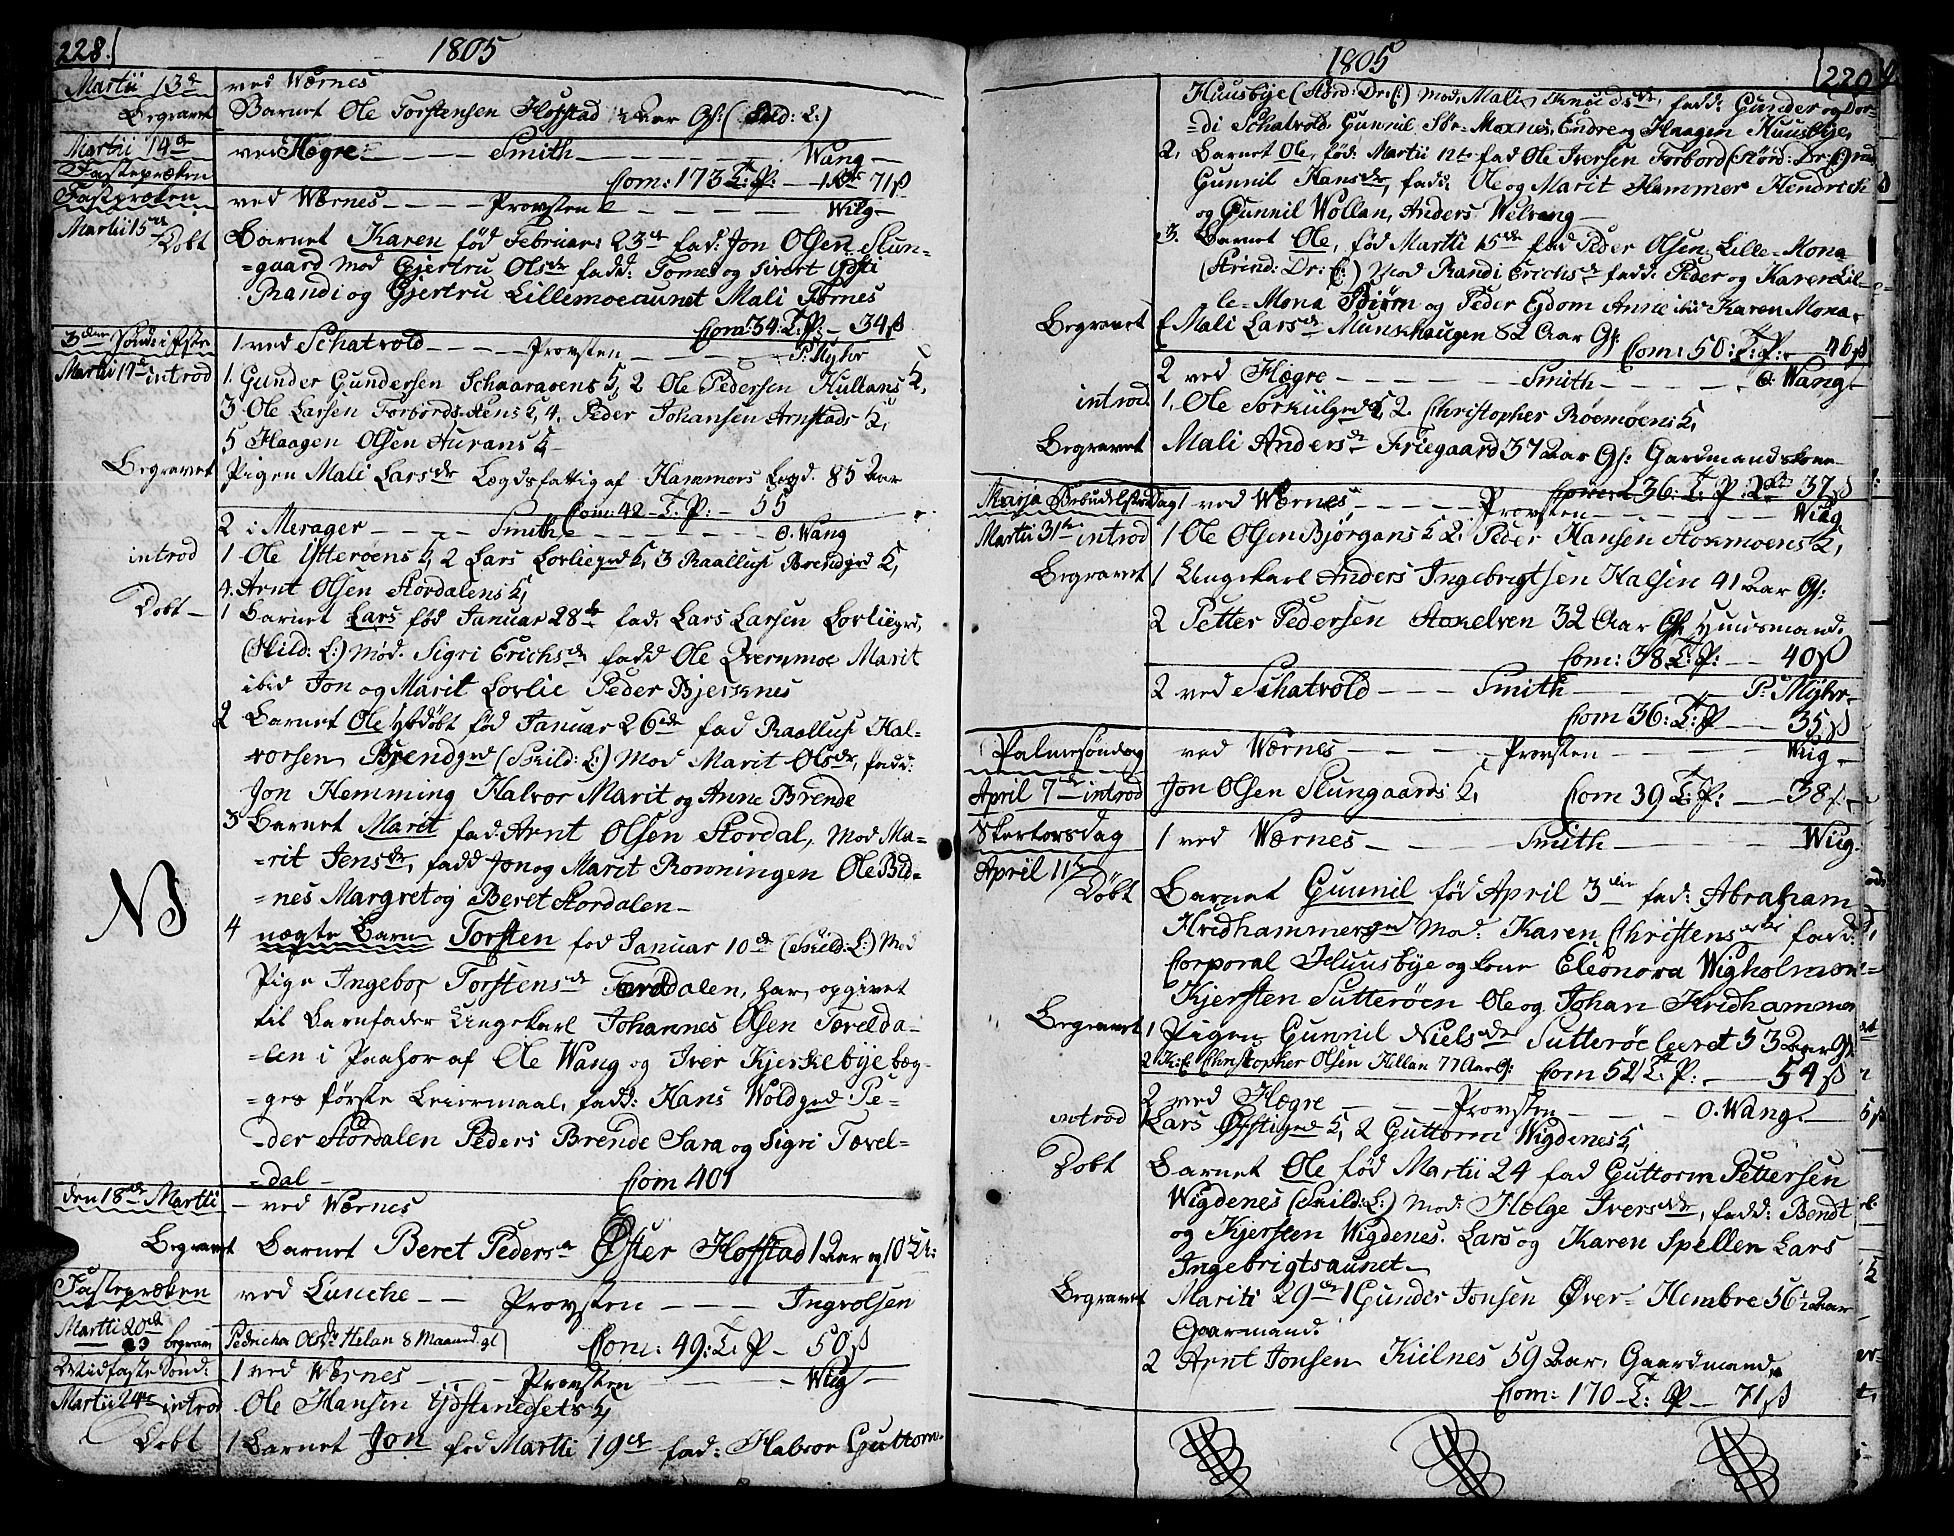 228.
1805
Martii 13de
ved Wærnes
Begravet
Barnet Ole Torstensen Hofstad Aar Gl: (Skild: L:)
Martii 14de
ved Hegre Smith Wang
Fastepræken
Com: 173 T: P: 71 ß
Fastprøken
ved Wærnes Provsten Wiig
Martii 15de
Døbt
Barnet Karen fød Februar: 23de fad: Jon Olsen Slun-
=gaard Mod Gjertru Olsdr fadd: Tomes og Sivert Ydsti
Randi og Gjertru Lillemoeaunet Mali Fornes
Com: 34 T: P: 34 ß
3die Søndi Fste
1 ved Schatvold Provsten P: Myhr
Martii 17de introd
1. Gunder Gundersen Schaaraaens K, 2 Ole Pedersen Hullans K,
3 Ole Larsen Forbords K, 4. Peder Johansen Arnstads K,
5 Haagen Olsen Aurans K
Begravet
Pigen Mali Larsdr Lægdsfattig af Hammers Legd. 85 Aar
Com: 42 T. P: 55
2 i Merager Smith O. Wang
introd
1 Ole Ytterøens K, 2 Lars Lovliegrd K, 3 Raallusi Brendgrd K,
4. Arnt Olsen Stordalens K,
Døbt
1 Barnet Lars fød Januar 28de fad: Lars Larsen Lovliegrd,
(Skild: L:) Mod. Sigri Erichsdr fadd Ole Qvernmoe Marit
ibid Jon og Marit Lovlie Peder Bjersknes
2 Barnet Ole hiødøbt fød Januar 26de fad Raallusi Hal-
vorsen Brendgrd (Skild: L:) Mod Marit Olsdr, fadd:
Jon Hemming Halvor Marit og Anne Brende
3 Barnet Marit fad Arnt Olsen Stordal, Mod Ma-
=rit Jensdr, fadd Jon og Marit Ronningen Ole Bid-
=nes Margret og Beret Stordalen
NB
4 uægte Barn Torsten fød Januar 10de (Skild: L:) Mod
Pige Ingebor Torstensdr Teveldalen, har opgivet
til Barnfader Ungekarl Johannes Olsen Tævelda-
=len i Paahør af Ole Wang og Iver Kjerkebye bæg-
=ges første Leiermaal, fadd: Hans Woldgrd Pe-
=der Stordalen Peders Brende Sara og Sigri Tævel-
=dal Com 401
den 18de Martii
ved Wærnes
Begravet
Barnet Beret Pedersdr Øster Hofstad 1 Aar og 10 U:
Fastepræken
ved Lunche Provsten Ingvolsen
Martii 20de
23 begrav
Pedricha Helan 8 Maaned gl
Com: 49: T: P 50 ß
Midfaste Sønd:
1 ved Wærnes Provsten Wiig
Martii 24de introd
Ole Hansen K,
Døbt
1 Barnet Jon fød Martii 19de fad: Halvor Guttorm-
1805
220
Huusbye (Størd: Dr: C:) Mod: Mali Knudsdr fadd: Gunder og Bor-
=di Schatvold Gunnil Sør-Moxnes, Endre og Haagen Huusbye,
2, Barnet Ole, fød: Martii 12te fad Ole Iversen Forbord (Størd: Dr: C:) Mod
Gunnil Hansdr, fadd: Ole og Marit Hammer Hendrich
og Gunnil Wollan, Anders Welvang
3. Barnet Ole, fød Martii 15de fad Peder Olsen Lille-Mona
(Strind: Dr: C:) Mod Randi Erichsdr fadd: Peder og Karen Lil-
le-Mona Biørn og Peder Egdom Anne ibid Karen Mona.
Begravet
Mali Larsdr Munshaugen 82 Aar Gl:
Com: 50: T: P: 46 ß
2 ved Hegre Smith O: Wang
introd
1. Ole Sorkiilgrds K, 2. Christopher Røemøens K,
Begravet
Mali Andersdr Friegaard 37 Aar Gl: Gardmandskone
Com: 36: T. P. 37 ß
Marja Bebudelses Dag
1 ved Wærnes Provsten Wiig
Martii 31te introd
1 Ole Olsen Bjørgans K 2. Peder Hansen Stokmoens K,
Begravet
1 Ungekarl Anders Ingebrigtsen Halsen 41 Aar Gl:
2 Petter Pedersen Stokelven 32 Aar Gl. Huusmand.
Com: 38 T: P: 40 ß
2 ved Schatvold Smith P. Myhr
Com 36: T: P 35 ß
Palmesøndag
ved Wærnes Provsten Wiig
April 7de introd
Jon Olsen Slungaards K, Com 39 T: P: 38 ß
Skertorsdag
1 ved Wærnes Smith Wiig
April 11te
Døbt
Barnet Gunnil fød April 3die fad: Abraham
Hridhammergrd Mod: Karen Christensdr fadd:
Corporal Huusbye og kone Eleonora Wigholmen
Kjersten Sutterøen Ole og Johan Hridhammer
Begravet
1 Pigen Gunnil Nielsdr Sutterøe leeret 53 Aar Gl
2 Christopher Olsen Killan 77 Aar Gl: Com 52 T: P: 54 ß
2 ved Hegre Provsten O. Wang
introd
Lars Øfstigrd K, 2 Guttorm Wigdenes K,
Døbt
Barnet Ole fød Martii 24 fad Guttorm Pettersen
Wigdenes (Skild: L:) Mod: Helge Iversdr, fadd: Bendt
og Kjersten Wigdenes. Lars og Karen Spellen Lars
Ingebrigtsaunet
Begravet
Mariti 29de 1 Gunder Jonsen Øver-Hembre 56½ Aar
Gaarmand.
2 Arnt Jonsen Kiilnes 59 Aar, Gaardmand
Com: 170 T: P 71 ß